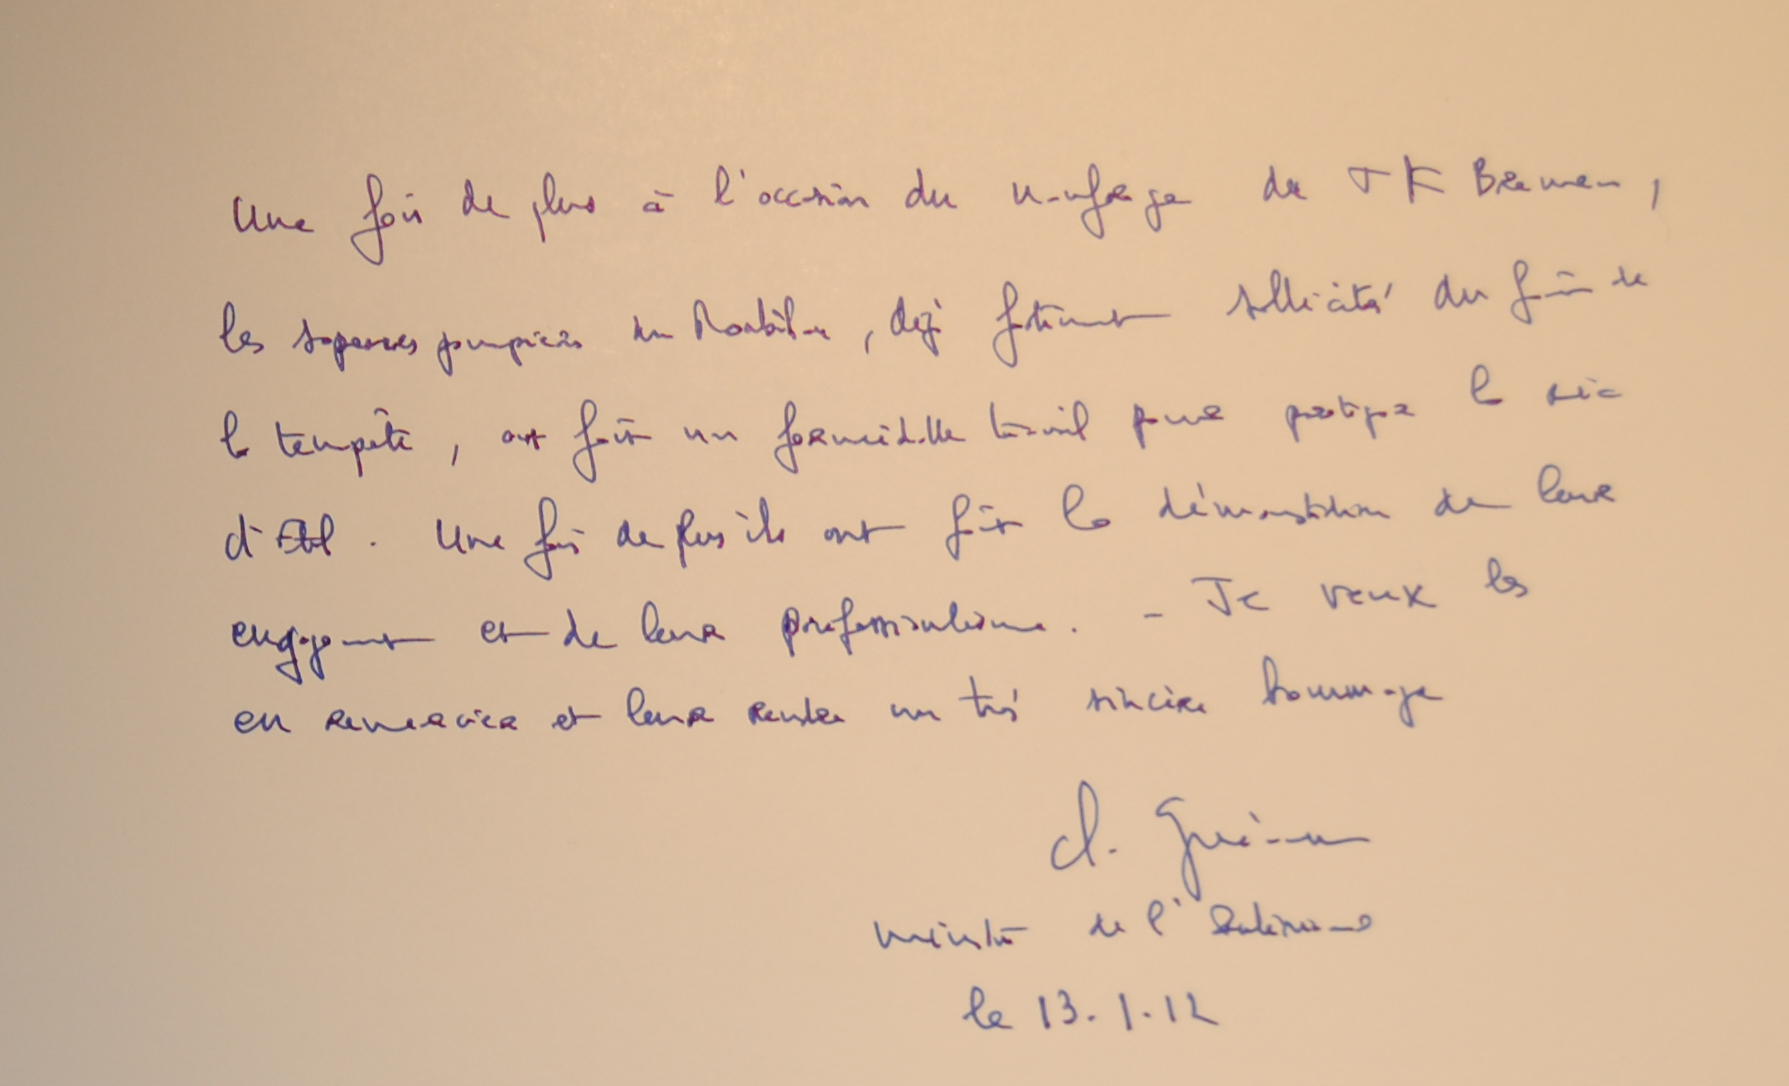 Une fois de plus à l'occasion du naufrage du TK Bremen,
les sapeurs pompiers du Morbihan, déjà fortement sollicités du fait de
la tempête, ont fait un formidable travail pour protéger la ria
d'Etel. Une fois de plus ils ont fait la démonstration de leur
engagement et de leur professionnalisme. - Je veux les
en remercier et leur rendre un très sincère hommage
Cl. Guéant
ministre de l'Intérieur
le 13.1.12